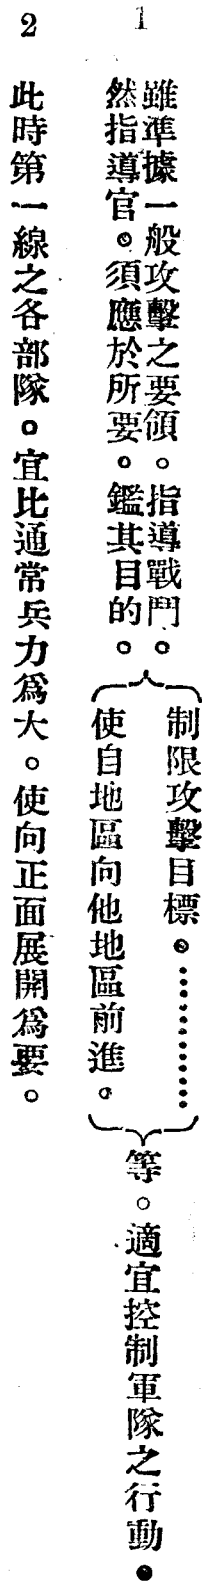 1
雖準據一般攻擊之要領。指導戰鬥。
然指導官。須應於所要。鑑其目的。
制限攻擊目標。…………
使自地區向他地區前進。
等。適宜控制軍隊之行動。
2
此時第一線之各部隊。宜比通常兵力爲大。使向正面展開爲要。